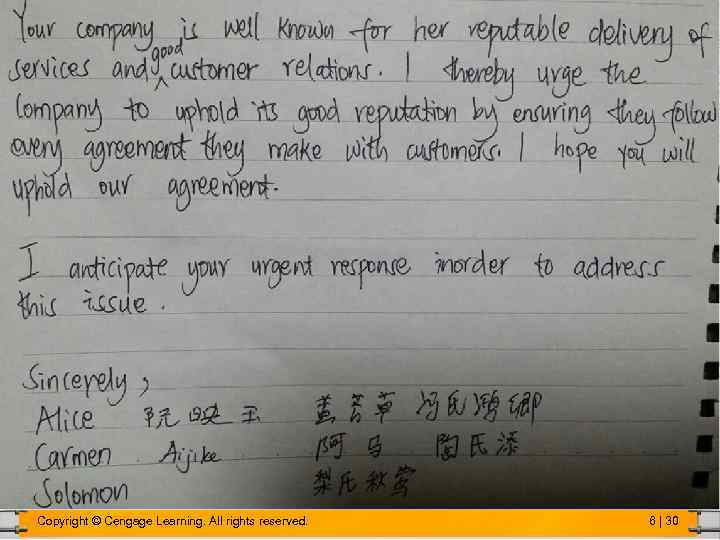 Your company is well known for her reputable delivery of
services and good customer relations. I thereby urge the
Company to uphold its good reputation by ensuring they follow
every agreement they make with customers. I hope you will
uphold our agreement.
I anticipate your urgent response inorder to address
this issue.
Sincerely,
Alice 阮映玉 黄苔草 冯氏鸿
Carmen Aijike 阿马 陶氏添
Solomon 梨氏秋莺
Copyright © Cengage Learning. All rights reserved. 6 | 30